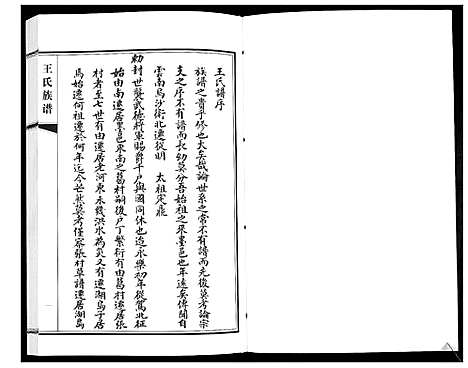 王氏譜序
族譜之貴乎修也大矣哉論世系之常不有譜而先後莫考論宗
支之序不有譜而長幼莫分吾始祖之來墨邑也年遠矣傳聞自
雲南烏沙衛北遷從明 太祖定鼎
勅封世襲武德將軍賜爵千戶與國同休也迨永樂初年從駕北征
始由南遷居墨邑東南之葛村嗣後戶丁繁衍有由葛村遷居張
村者至七世有由遷居老河東未幾洪水為災又有遷湖島子居
馬始遷何祖遷於何年迄今茫然莫考僅察張村草譜遷居湖島
王氏族谱
一